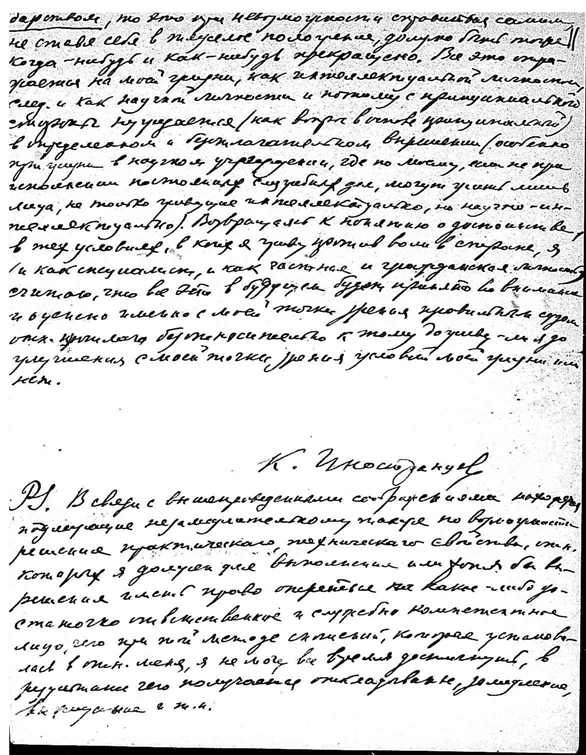 дарством, то это при невозможности справиться самим,
не ставя себя в тяжелое положение, должно быть тоже
когда-нибудь и как-нибудь прекращено. Все это отра-
жается на моей жизни, как интеллектуальной личности,
след. и как научной личности и потому с принципиальной
стороны нуждается (как вопрос в основе принципиальный)
в определенном и безотлагательном вырешении (особенно
при жизни в научном учреждении, где по моему, как не при
исполнении постоянных служебных дел, могут жить лишь
лица, не только живущие интеллектуально, но научно-ин-
теллектуально). Возвращаясь к понятию о достоинстве,
в тех условиях, в кот. я живу против воли в стороне, я
/и как специалист, и как частная и гражданская личность/
считаю, что все это в будущем будет принято во внимание
и оценено именно с моей точки зрения правильным судом
отн. прошлого безотносительно к тому доживу-ли я до
улучшения с моей точки зрения условий моей жизни или
нет.
К. Иностранцев
PS. В связи с вышеприведенными соображениями находятся
подлежащие незамедлительному также по возможности
решения практического, технического свойства, отн.
которых я должен для выполнения или хотя бы вы-
решения иметь право опереться на какое-либо до-
статочно ответственное и служебно компетентное
лицо, чего при той методе сношений, которая установи-
лась в отн. меня, я не могу во время достигнуть, в
результате чего получается откладывание, замедление,
и т.п.